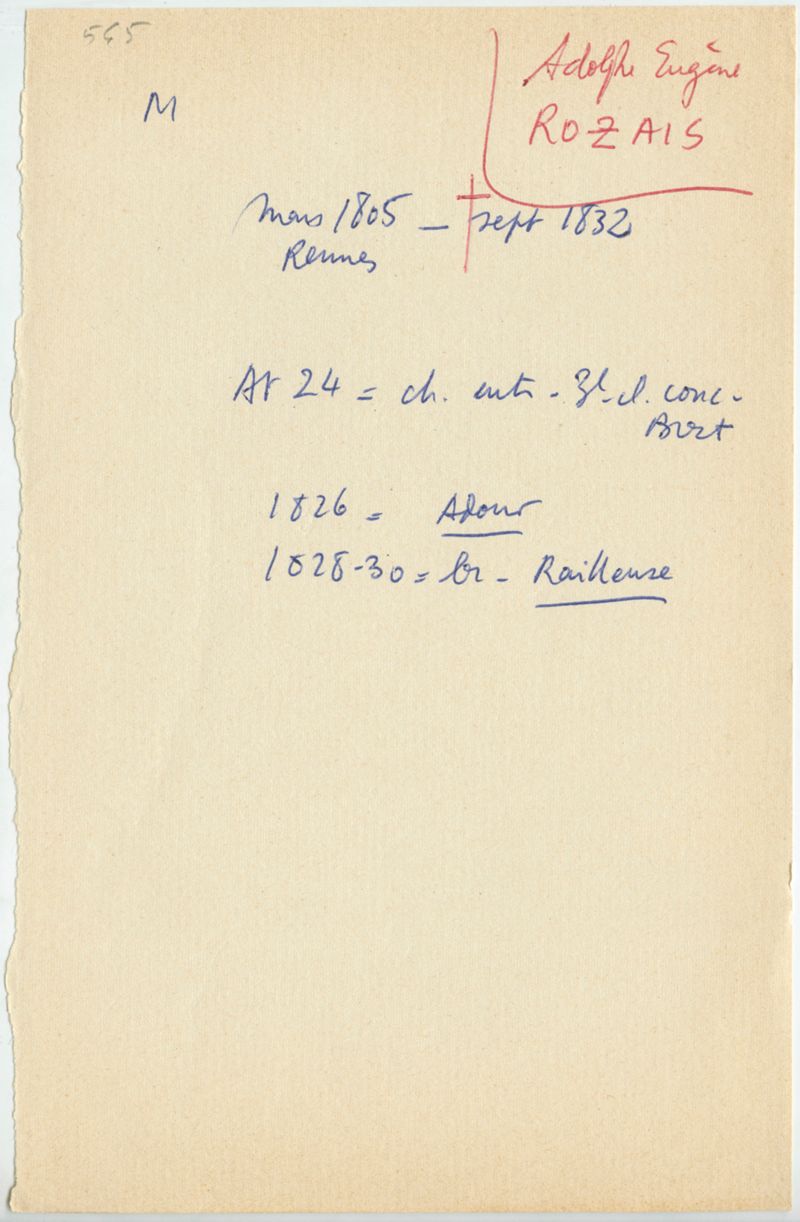 565
M
Adolphe Eugène
ROZAIS
Mars 1805 – † sept 1832
Rennes
At 24 = ch. ent. - 3e cl. conc -
Brest
1826 = Adour
1828-30 = br - Railleuse